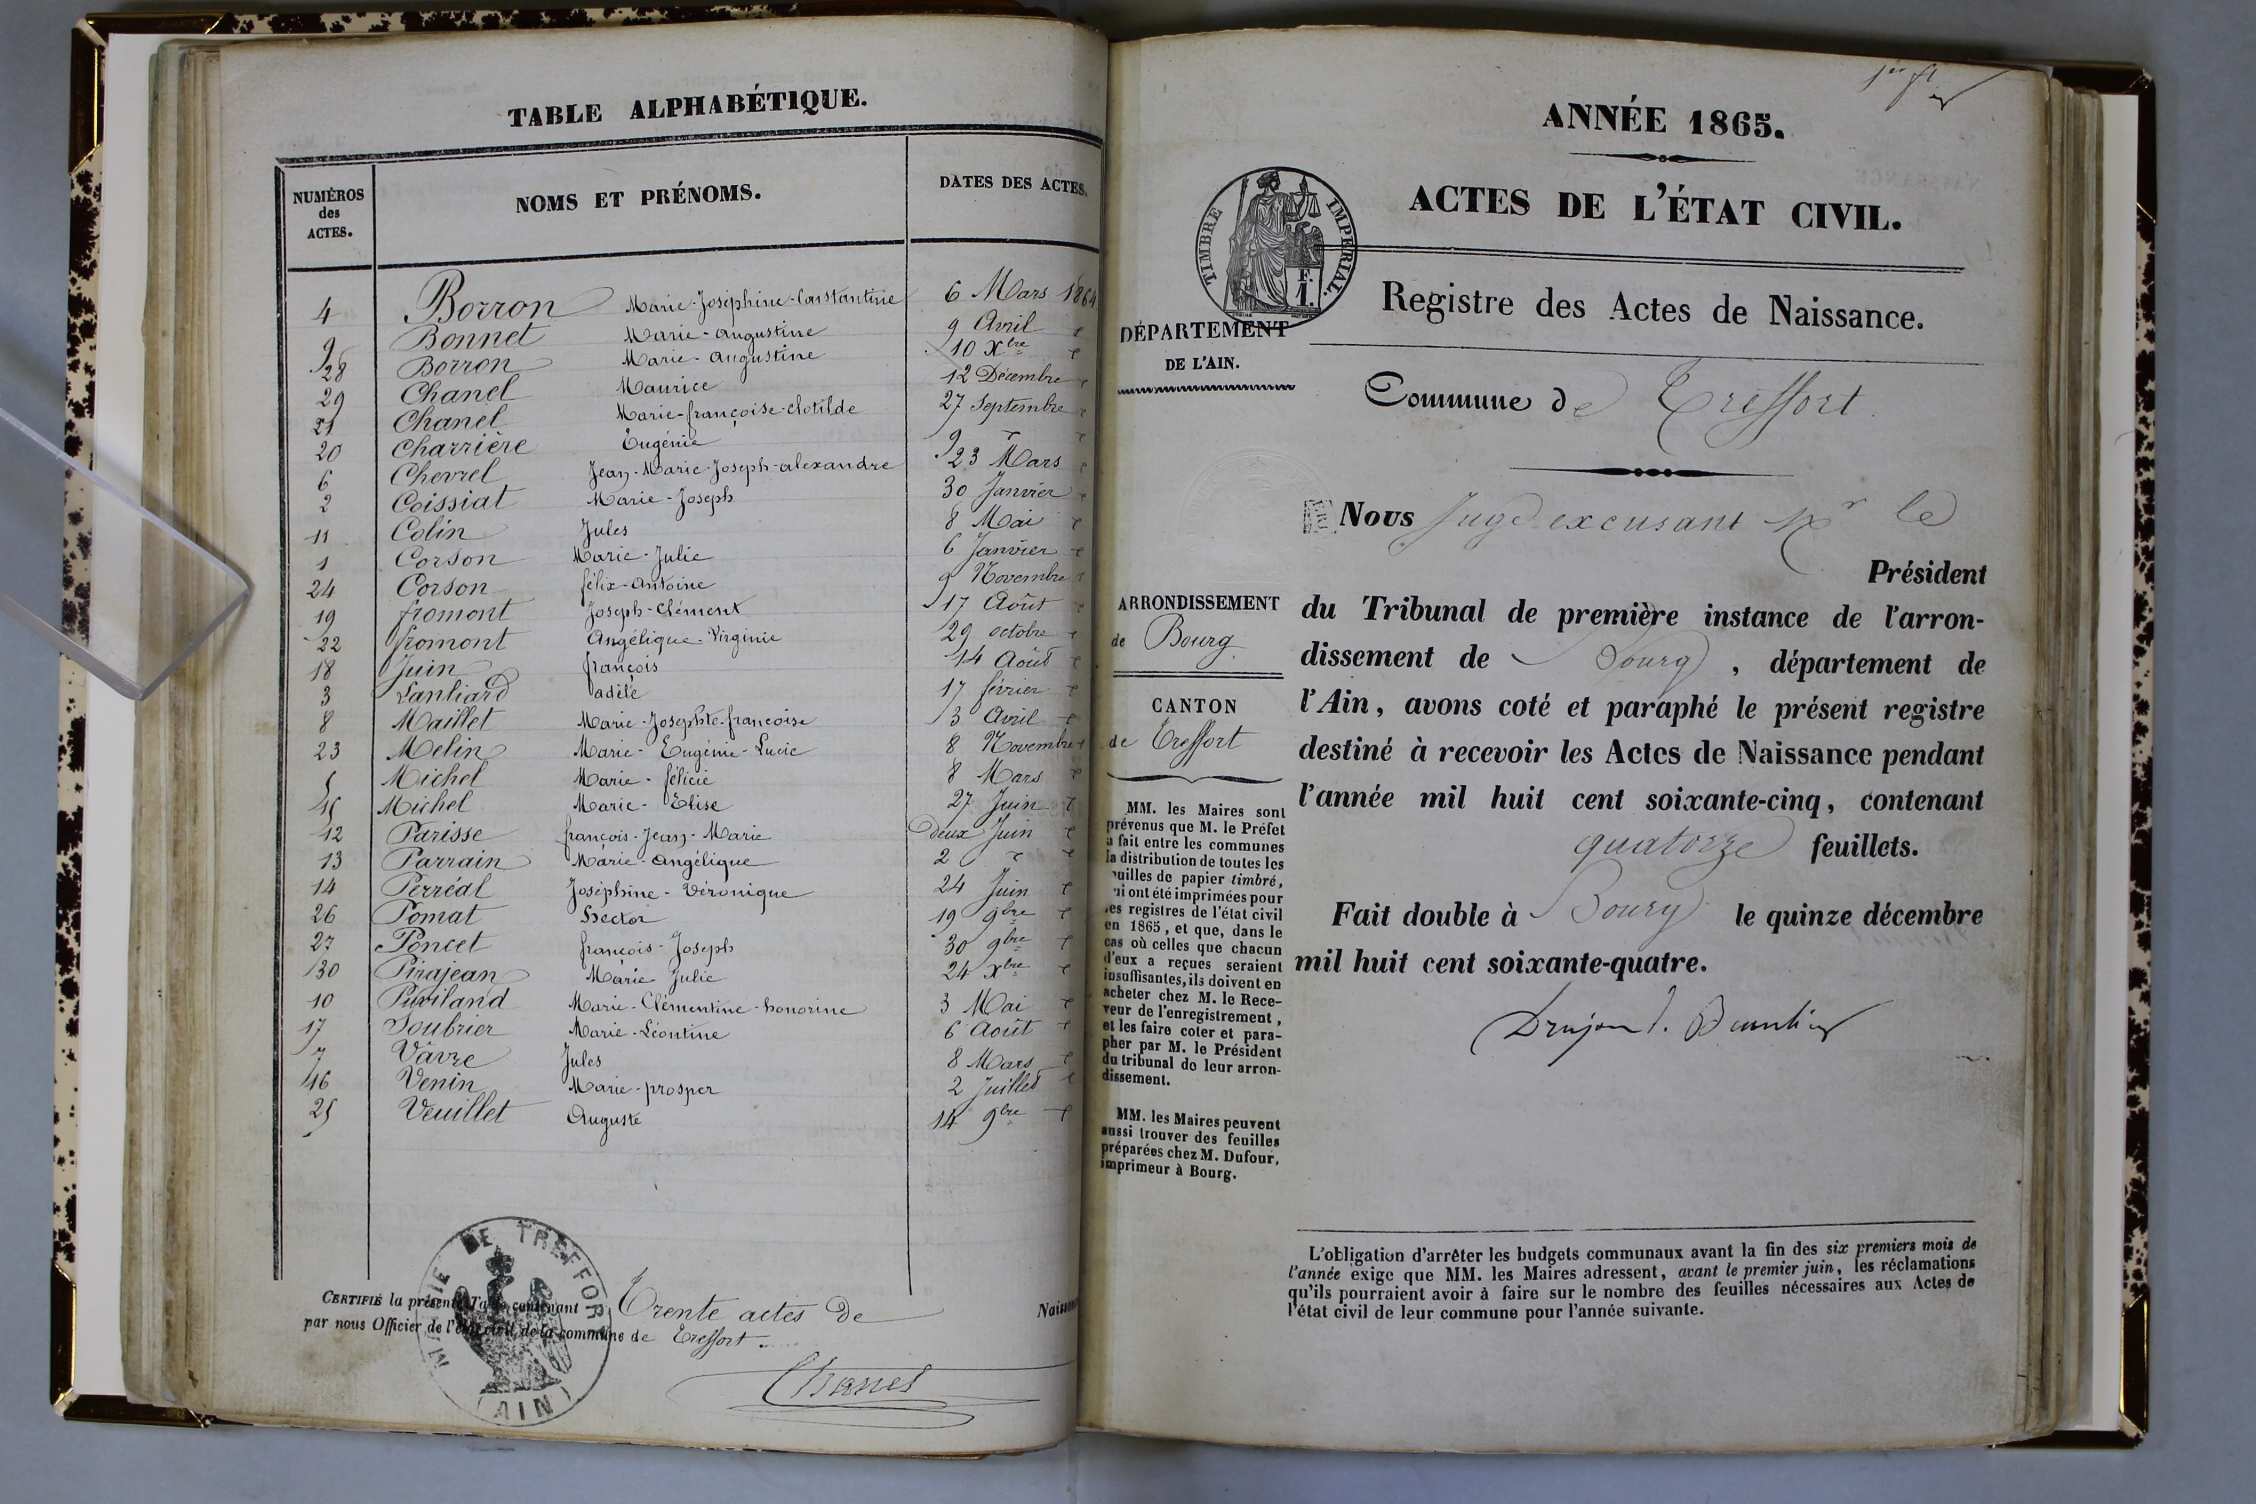 TABLE ALPHABÉTIQUE.
NUMÉROS des ACTES.
NOMS ET PRÉNOMS.
DATES DES ACTES.
4 Borron Marie-Joséphine-Constantine 6 Mars 1864
9 Bonnet Marie-Augustine 9 Avril
28 Borron Marie-Augustine 10 Xbre
29 Chanel Maurice 12 Décembre
21 Chanel Marie-françoise-Clotilde 27 Septembre
20 Charrière Eugénie 9
6 Chevrel Jean-Marie-Joseph-alexandre 23 Mars
2 Coissiat Marie-Joseph 30 Janvier
11 Colin Jules 8 Mai
1 Corson Marie-Julie 6 Janvier
24 Corson félix-Antoine 9 Novembre
19 fromont Joseph-Clément 17 Août
22 fromont Angélique-Virginie 29 octobre
18 Juin françois 14 Août
3 Lanliard adèle 17 février
8 Maillet Marie-Josephte-françoise 3 Avril
23 Melin Marie-Eugénie-Lucie 8 Novembre
5 Michel Marie-félicie 8 Mars
15 Michel Marie-Elise 27 Juin
12 Parisse françois-Jean-Marie deux Juin
13 Parrain Marie-Angélique 2
14 Perréal Joséphine-Véronique 24 Juin
26 Pomat hector 19 9bre
27 Poncet françois-Joseph 30 9bre
30 Pirajean Marie Julie 24 Xbre
10 Marie-Clémentine-honorine 3 Mai
17 Soubrier Marie-Léontine 6 Août
7 Vâvre Jules 8 Mars
16 Venin Marie-prosper 2 Juillet
25 Veuillet Auguste 14 9bre
CERTIFIÉ la présente Table contenant Trente actes de Naissance
par nous Officier de l'état civil de la commune de Treffort
MAIRIE DE TREFFORT
(AIN)
Chanel
1er ft
ANNÉE 1865.
ACTES DE L'ÉTAT CIVIL.
TIMBRE IMPERIAL.
F.
1.
Registre des Actes de Naissance.
DÉPARTEMENT
DE L'AIN.
Commune de Treffort
Nous Juge excusant Mr le
Président
du Tribunal de première instance de l'arron-
dissement de Bourg, département de
l'Ain, avons coté et paraphé le présent registre
destiné à recevoir les Actes de Naissance pendant
l'année mil huit cent soixante-cinq, contenant
quatorze feuillets.
Fait double à Bourg le quinze décembre
mil huit cent soixante-quatre.
ARRONDISSEMENT
de Bourg
CANTON
de Treffort
MM. les Maires sont
prévenus que M. le Préfet
a fait entre les communes
la distribution de toutes les
feuilles de papier timbré,
qui ont été imprimées pour
les registres de l'état civil
en 1865, et que, dans le
cas où celles que chacun
d'eux a reçues seraient
insuffisantes, ils doivent en
acheter chez M. le Rece-
veur de l'enregistrement,
et les faire coter et para-
pher par M. le Président
du tribunal de leur arron-
dissement.
MM. les Maires peuvent
aussi trouver des feuilles
préparées chez M. Dufour,
imprimeur à Bourg.
L'obligation d'arrêter les budgets communaux avant la fin des six premiers mois de
l'année exige que MM. les Maires adressent, avant le premier juin, les réclamations
qu'ils pourraient avoir à faire sur le nombre des feuilles nécessaires aux Actes de
l'état civil de leur commune pour l'année suivante.